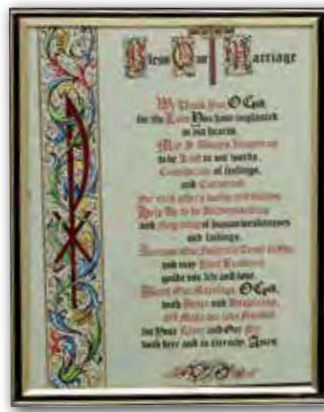 Bless Our Marriage
We Thank You, O God,
for the Love You have implanted
in our hearts.
May it Always Inspire us
to be Kind in our words,
Considerate of feelings,
and Concerned
For each other's needs and wishes.
Help Us to be Understanding
and Forgiving of human weaknesses
and failings.
Increase Our Faith and Trust in You
and may Your Prudence
guide our life and love.
Bless Our Marriage, O God,
with Peace and Happiness,
and Make our love Fruitful
for Your Glory and Our Joy
both here and in eternity. Amen